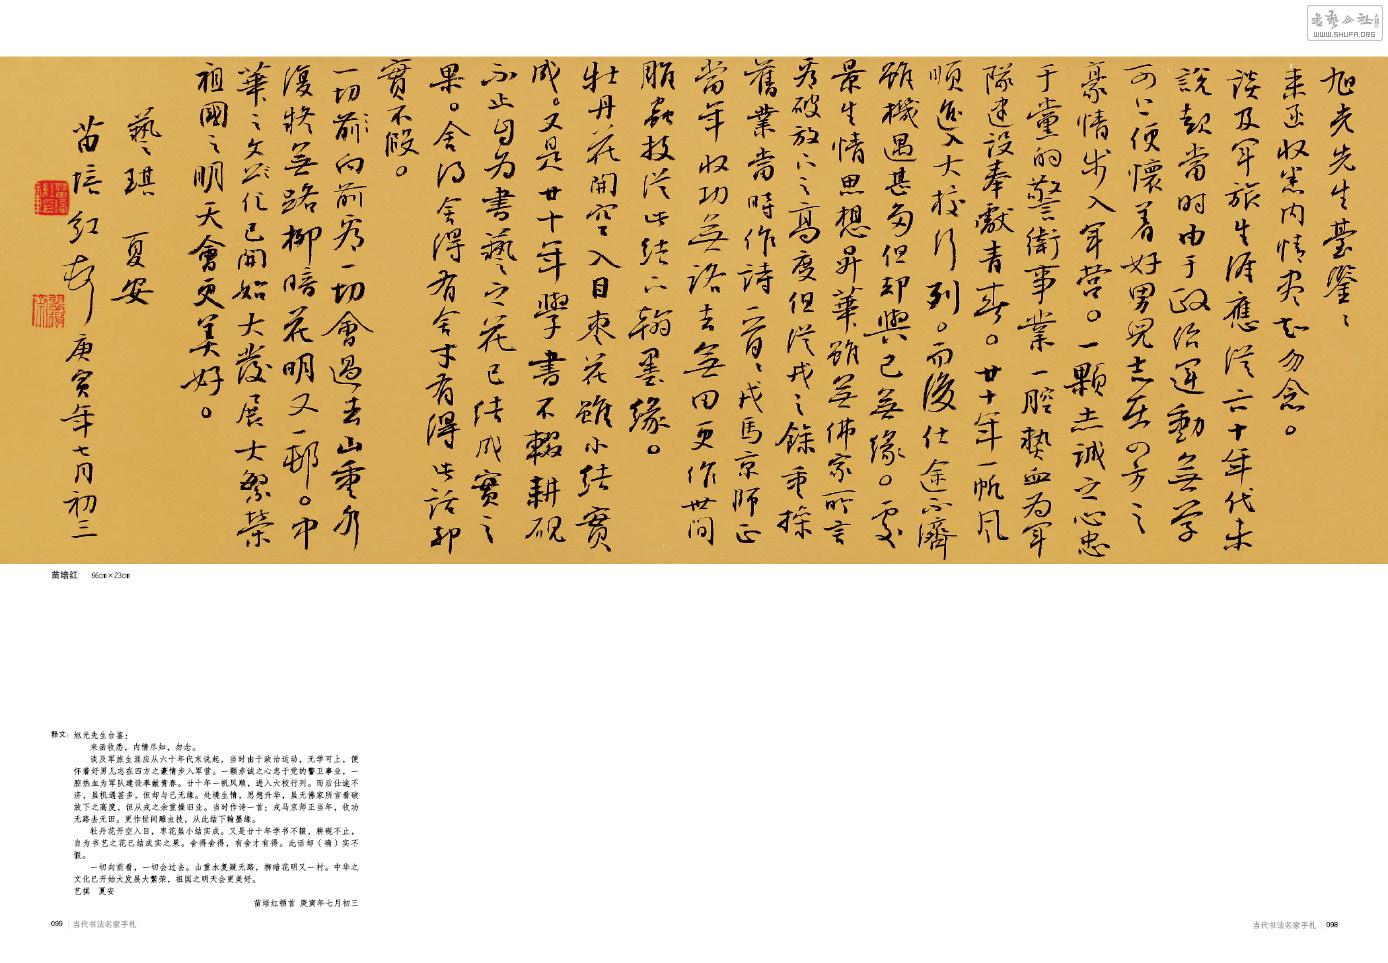 書藝公社
WWW.SHUFA.ORG
旭光先生臺鑒:
來函收悉內情盡知勿念。
談及軍旅生涯應從六十年代末
說起當時由于政治運動無學
可上便懷着好男兒志在四方之
豪情步入軍營。一顆赤誠之心忠
于黨的警衛事業一腔熱血為軍
隊建設奉獻青春。廿十年一帆風
順進入大校行列。而後仕途不濟
雖機遇甚多但却與己無緣。處
景生情思想昇華雖無佛家所言
看破放下之高度但從戎之餘重操
舊業當時作詩一首:戎馬京師正
當年收功無路去無田更作世間
雕蟲技從此結下翰墨緣。
牡丹花開空入目棗花雖小結實
成。又是廿十年學書不輟耕硯
不止自為書藝之花已結成實之
果。舍得舍得有舍才有得此話却
實不假。
一切向前看一切會過去山重水
復疑無路柳暗花明又一邨。中
華之文化已開始大發展大繁榮
祖國之明天會更美好。
藝祺 夏安
苗培紅頓首 庚寅年七月初三
苗培红 66cm×23cm
释文: 旭光先生台鉴:
来函收悉，内情尽知，勿念。
谈及军旅生涯应从六十年代末说起，当时由于政治运动，无学可上，便
怀着好男儿志在四方之豪情步入军营。一颗赤诚之心忠于党的警卫事业，一
腔热血为军队建设奉献青春。廿十年一帆风顺，进入大校行列。而后仕途不
济，虽机遇甚多，但却与己无缘。处境生情，思想升华，虽无佛家所言看破
放下之高度，但从戎之余重操旧业。当时作诗一首：戎马京师正当年，收功
无路去无田。更作世间雕虫技，从此结下翰墨缘。
牡丹花开空入目，枣花虽小结实成。又是廿十年学书不辍，耕砚不止，
自为书艺之花已结成实之果。舍得舍得，有舍才有得。此话却（确）实不
假。
一切向前看，一切会过去。山重水复疑无路，柳暗花明又一村。中华之
文化已开始大发展大繁荣，祖国之明天会更美好。
艺祺 夏安
苗培红顿首 庚寅年七月初三
099 当代书法名家手札
当代书法名家手札 098